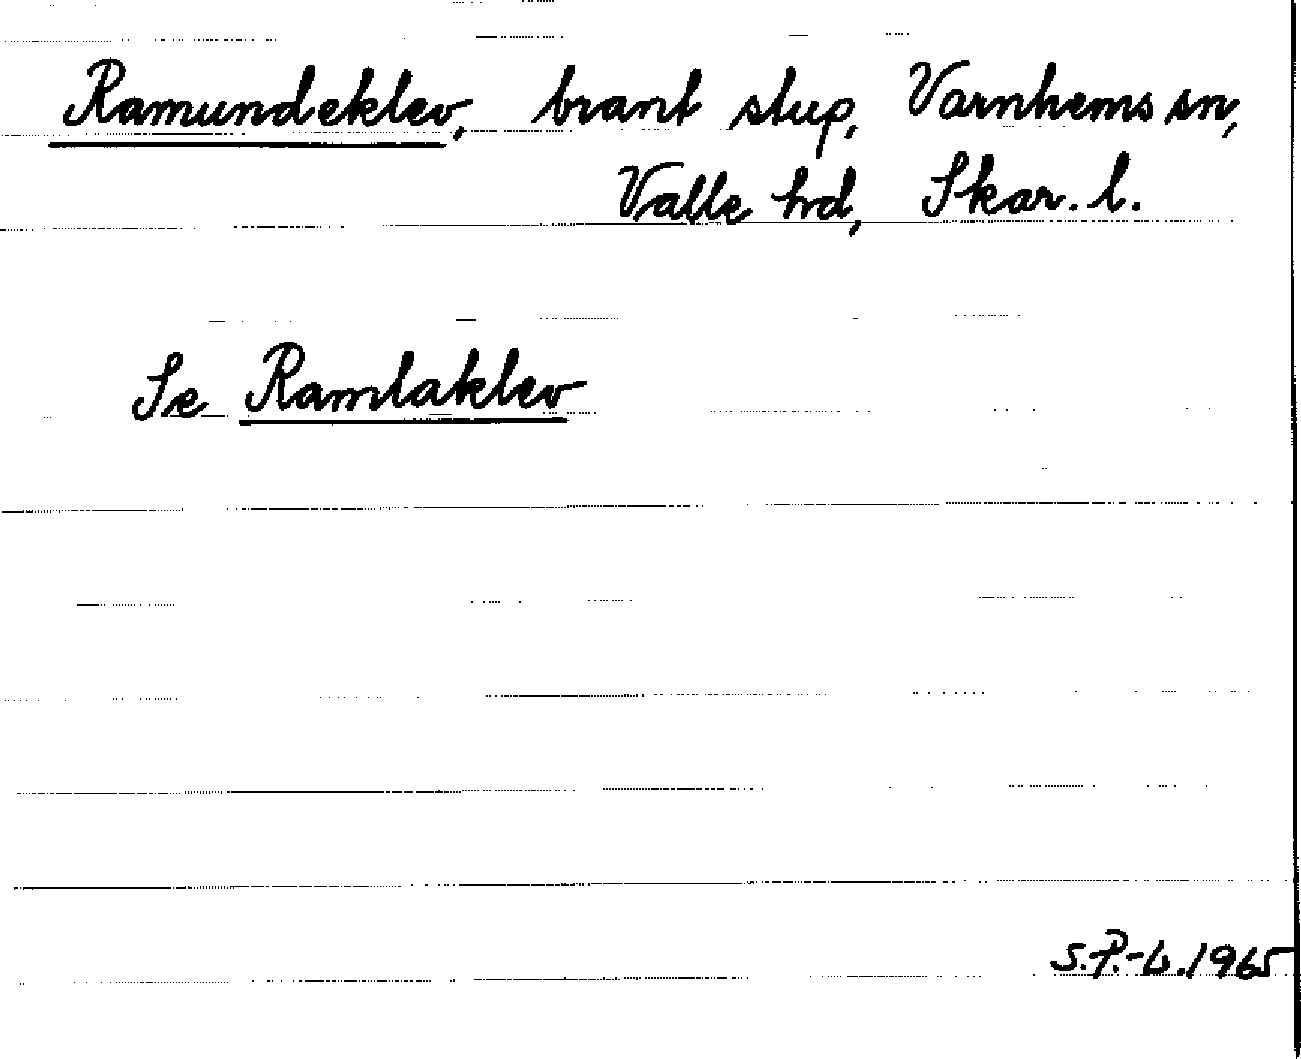 Ramundeklev, brant stup, Varnhems sn,
Valle hd, Skar. l.
Se Ramlaklev
S.P.-L. 1965